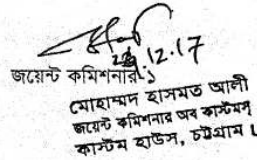 12.17
জয়েন্ট কমিশনার১
মোহাম্মদ হাসমত আলী
জয়েন্ট কমিশনার অব কাস্টমস্
কাস্টম হাউস, চট্টগ্রাম।